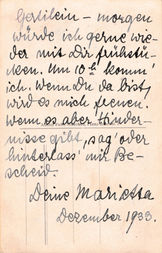 Gertilein – morgen
würde ich gerne wie-
der mit Dir frühstü-
cken. Um 10 h komm'
ich. Wenn Du da bist,
wird es mich freuen.
Wenn es aber Hinder-
nisse gibt, sag' oder
hinterlass' mir Be-
scheid.
Deine Marietta
Dezember 1933.